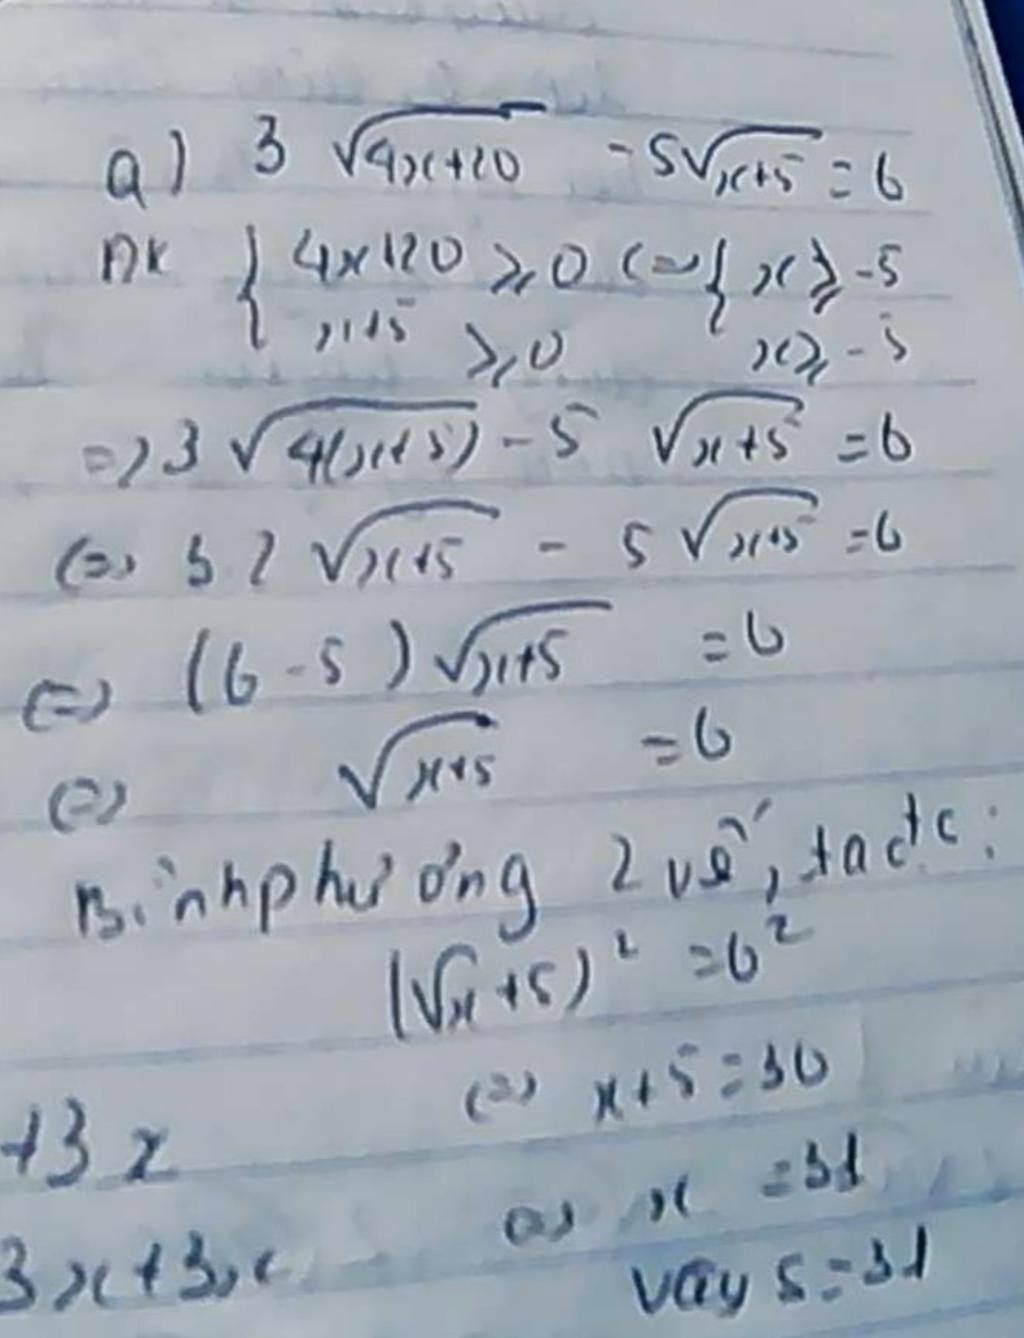 a) 3 √4x+20 - 5√x+5 = 6
ĐK { 4x+20 ⩾ 0 <=> { x ⩾ -5
x+5 ⩾ 0 x ⩾ -5
=> 3 √4(x+5) - 5 √x+5 = 6
<=> 3.2 √x+5 - 5 √x+5 = 6
<=> (6-5) √x+5 = 6
<=> √x+5 = 6
Bình phương 2 vế, ta đc:
(√x+5)² = 6²
<=> x+5 = 36
+3x
<=> x = 31
3x+3x
vậy S = 31